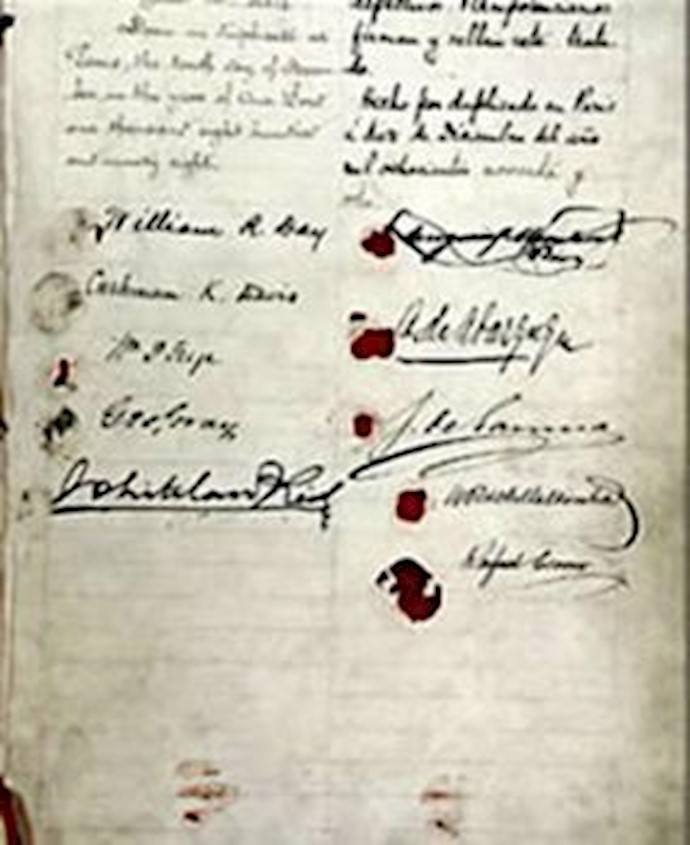 Done in duplicate at
Paris, the tenth day of Decem-
ber, in the year of Our Lord
one thousand eight hundred
and ninety eight.
William R. Day
Cushman K. Davis
Wm P Frye
Geo. Gray
Whitelaw Reid
firman y sellan este trata-
do.
Hecho por duplicado en Paris
á diez de Diciembre del año
mil ochocientos noventa y
ocho.
B. de Abarzuza
J. de Garnica
W R de Villa Urrutia
Rafael Cerero